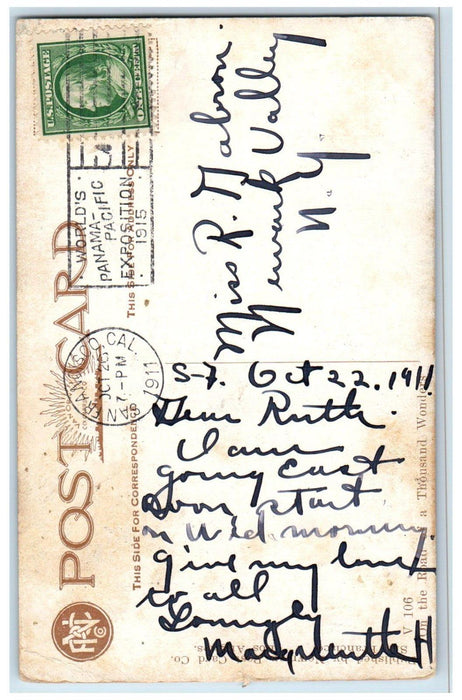 U.S. POSTAGE
ONE CENT
WORLD'S
PANAMA-
PACIFIC
EXPOSITION
1915
SAN FRANCISCO, CAL.
OCT 26
7-PM
1911
POST CARD
THIS SIDE FOR ADDRESS ONLY
THIS SIDE FOR CORRESPONDENCE
Miss R. Gabron
Newark Valley
N. Y
S-F. Oct 22. 1911
Dear Ruth.
I am
going East
soon start
on Wed morning.
give my love
to all
Lovingly
V 106
On the Road of a Thousand Wonders
Published by Newman Post Card Co.
San Francisco Los Angeles